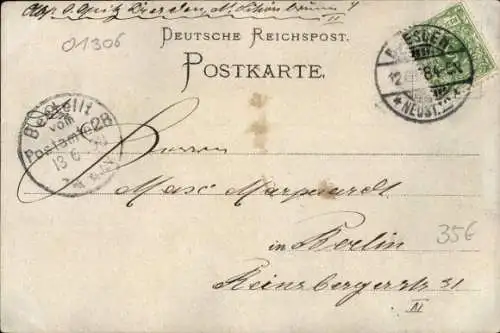 Dresden
II
01306
DEUTSCHE REICHSPOST.
POSTKARTE.
DRESDEN
12
NEUST.
Bestellt
vom
Postamte 28
13 6
Herrn
Max Marquardt
in Berlin
Reinsbergerstr 31
III
35€